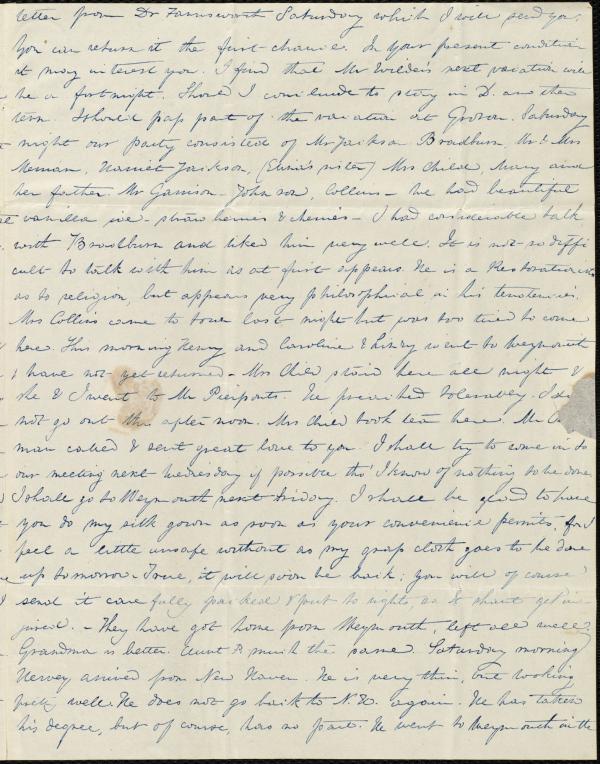 letter from Dr Farnsworth Saturday which I will send you.
You can return it the first chance. In your present condition
it may interest you. I find that Mr Wilder's next vacation will
be a fortnight. Should I conclude to stay in D. another
term. I should pass part of the vacation at Groton. Saturday
night our party consisted of Mr Jackson Bradburn, Mr & Mrs
Harriet Jackson, (Eliza's sister) Mrs Child, Mary and
her father. Mr Garrison - Johnson, Collins - We had beautiful
vanilla ice - straw berries & cherries - I had considerable talk
with Bradburn and liked him very well. It is not so diffi
cult to talk with him as at first appears. He is a Restorationist
as to religion, but appears very philosophical in his tendencies.
Mrs Collins came to town last night but was too tired to come
here. This morning Henry and Caroline & went to Weymouth
& have not yet returned - Mrs Child staid here all night &
she & I went to Mr Pierpont's. He preached tolerably. I did
not go out the after noon. Mrs Child took tea here. Mr
man called & sent great love to you. I shall try to come in to
our meeting next Wednesday if possible tho' I know of nothing to be done
I shall go to Weymouth next Friday. I shall be glad to have
you do my silk gown as soon as your convenience permits, for I
feel a little unsafe without as my grass cloth goes to be done
up tomorrow - True, it will soon be back; you will of course
send it carefully packed & put to rights, as it shant get in
jured. - They have got home from Weymouth, left all well
Grandma is better. Aunt P. much the same. Saturday morning
Hervey arrived from New Haven. He is very thin, but looking
well. He does not go back to N.H. again. He has taken
his degree, but of course, has no part. He went to Weymouth in the